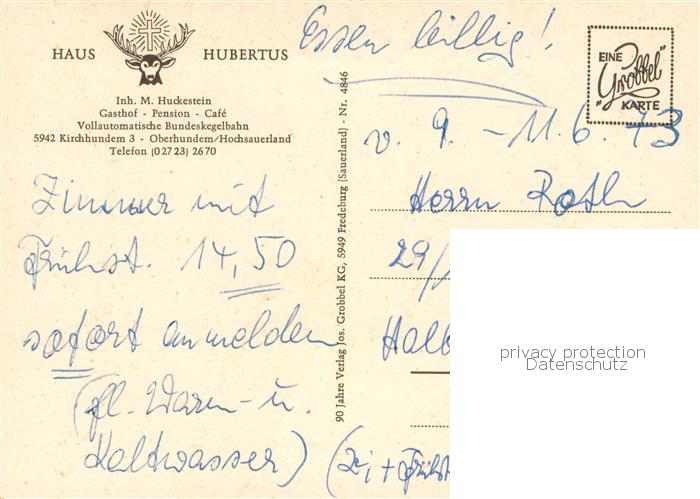 HAUS HUBERTUS
Inh. M. Huckestein
Gasthof - Pension - Café
Vollautomatische Bundeskegelbahn
5942 Kirchhundem 3 - Oberhundem/Hochsauerland
Telefon (0 27 23) 26 70
Zimmer mit
Frühst. 14,50
sofort anmelden
(fl. Warm- u.
Kaltwasser)
90 Jahre Verlag Jos. Grobbel KG, 5949 Fredeburg (Sauerland) - Nr. 4846
Essen billig!
EINE
„Grobbel"
KARTE
v. 9. - 11.6.73
Herrn Roth
29/
Halb
(Zi + Frühst
privacy protection
Datenschutz